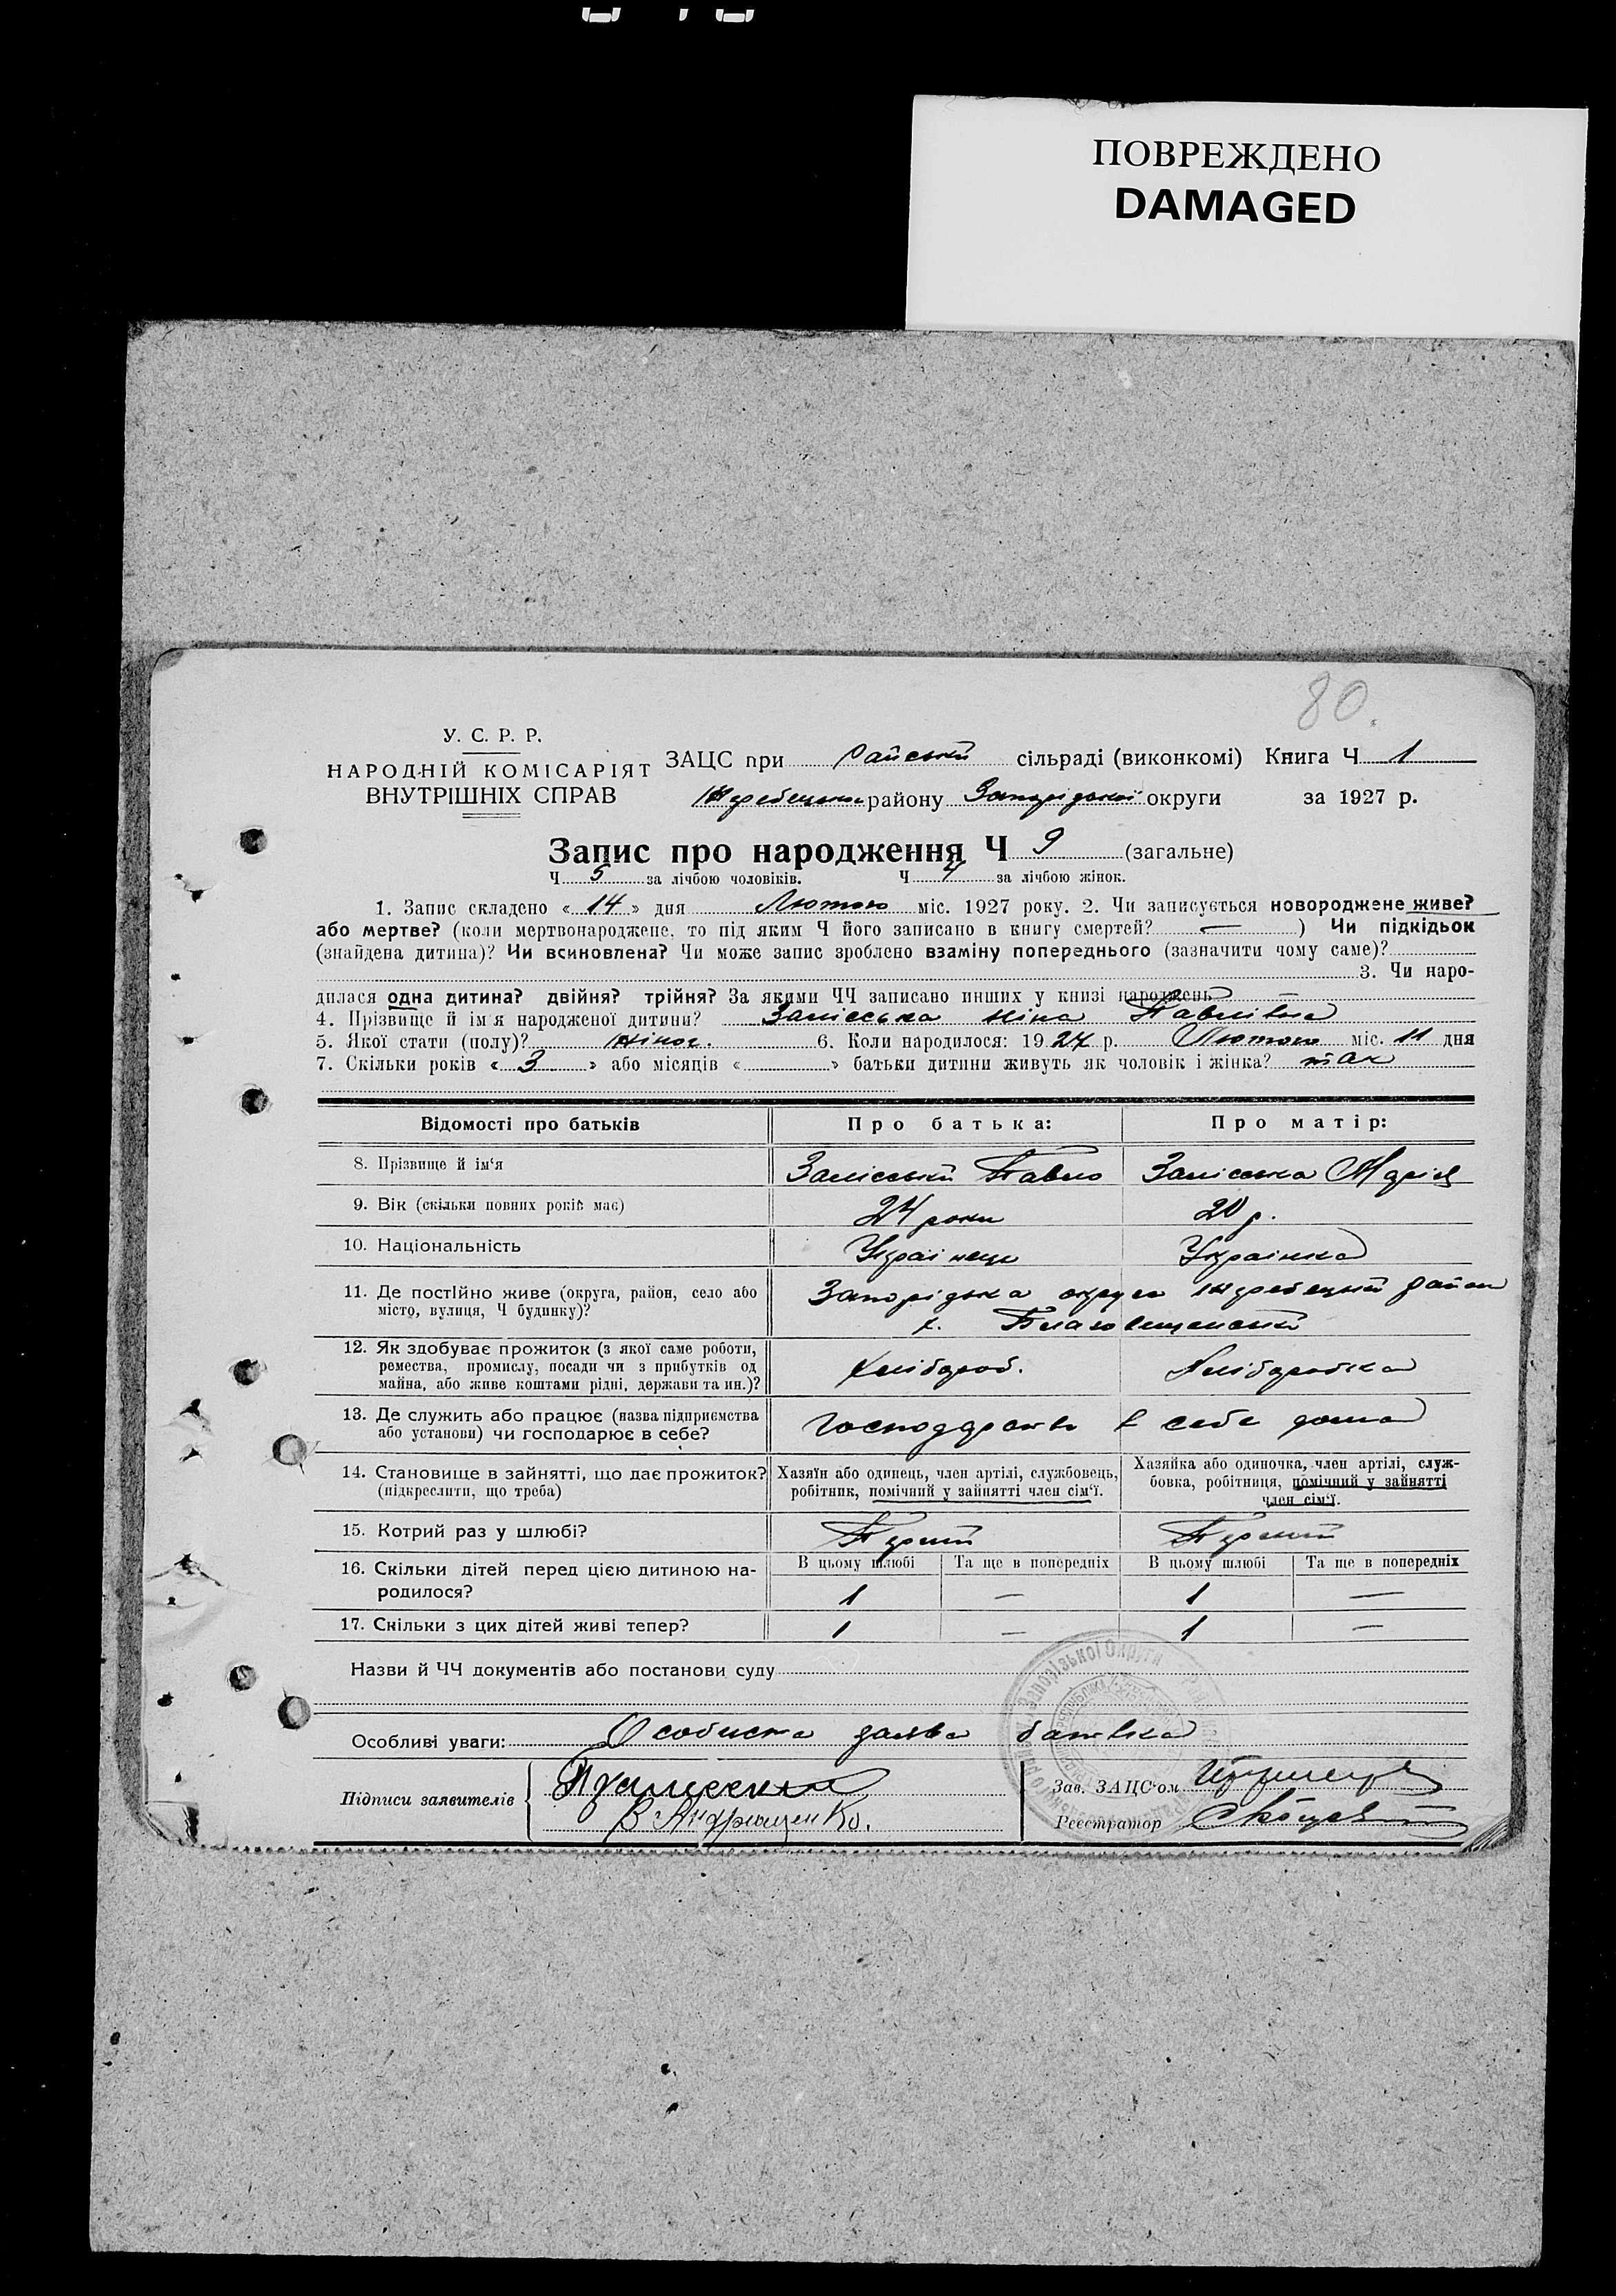 ПОВРЕЖДЕНО
DAMAGED
80.
У. С. Р. Р.
НАРОДНІЙ КОМІСАРІЯТ
ВНУТРІШНІХ СПРАВ
ЗАЦС при Райській сільраді (виконкомі) Книга Ч 1
Жеребецького району Запорізької округи за 1927 р.
Запис про народження Ч 9 (загальне)
Ч 5 за лічбою чоловіків. Ч 4 за лічбою жінок.
1. Запис складено « 14 » дня Лютого міс. 1927 року. 2. Чи записується новороджене живе?
або мертве? (коли мертвонароджене, то під яким Ч його записано в книгу смертей? — ) Чи підкідьок
(знайдена дитина)? Чи всиновлена? Чи може запис зроблено взаміну попереднього (зазначити чому саме)?
3. Чи наро-
дилася одна дитина? двійня? трійня? За якими ЧЧ записано инших у книзі народжень —
4. Прізвище й ім я народженої дитини? Заліська Ніна Павлівна
5. Якої стати (полу)? жіноч. 6. Коли народилося: 1927 р. Лютого міс. 11 дня
7. Скільки років « 3 » або місяців « » батьки дитини живуть як чоловік і жінка? так
Відомості про батьків Про батька: Про матір:
8. Прізвище й ім'я Заліський Павло Заліська Марія
9. Вік (скільки повних років має) 24 роки 20 р.
10. Національність Українець Українка
11. Де постійно живе (округа, район, село або
місто, вулиця, Ч будинку)?
Запорізька округа Жеребецький район
х. Благовіщенський
12. Як здобуває прожиток (з якої саме роботи,
ремества, промислу, посади чи з прибутків од
майна, або живе коштами рідні, держави та ин.)?
Хлібороб. Хліборобка
13. Де служить або працює (назва підприємства
або установи) чи господарює в себе?
Господарств в себе дома
14. Становище в зайнятті, що дає прожиток?
(підкреслити, що треба)
Хазяїн або одинець, член артілі, службовець,
робітник, помічний у зайнятті член сім'ї.
Хазяйка або одиночка, член артілі, служ-
бовка, робітниця, помічний у зайнятті
член сім'ї.
15. Котрий раз у шлюбі? Перший Перший
В цьому шлюбі Та ще в попередніх В цьому шлюбі Та ще в попередніх
16. Скільки дітей перед цією дитиною на-
родилося?
1 — 1 —
17. Скільки з цих дітей живі тепер? 1 — 1 —
Назви й ЧЧ документів або постанови суду
Особливі уваги: Особиста заява батька
Підписи заявителів
В Андрющенко.
Зав. ЗАЦС'ом
Реєстратор
Запорізької Округи